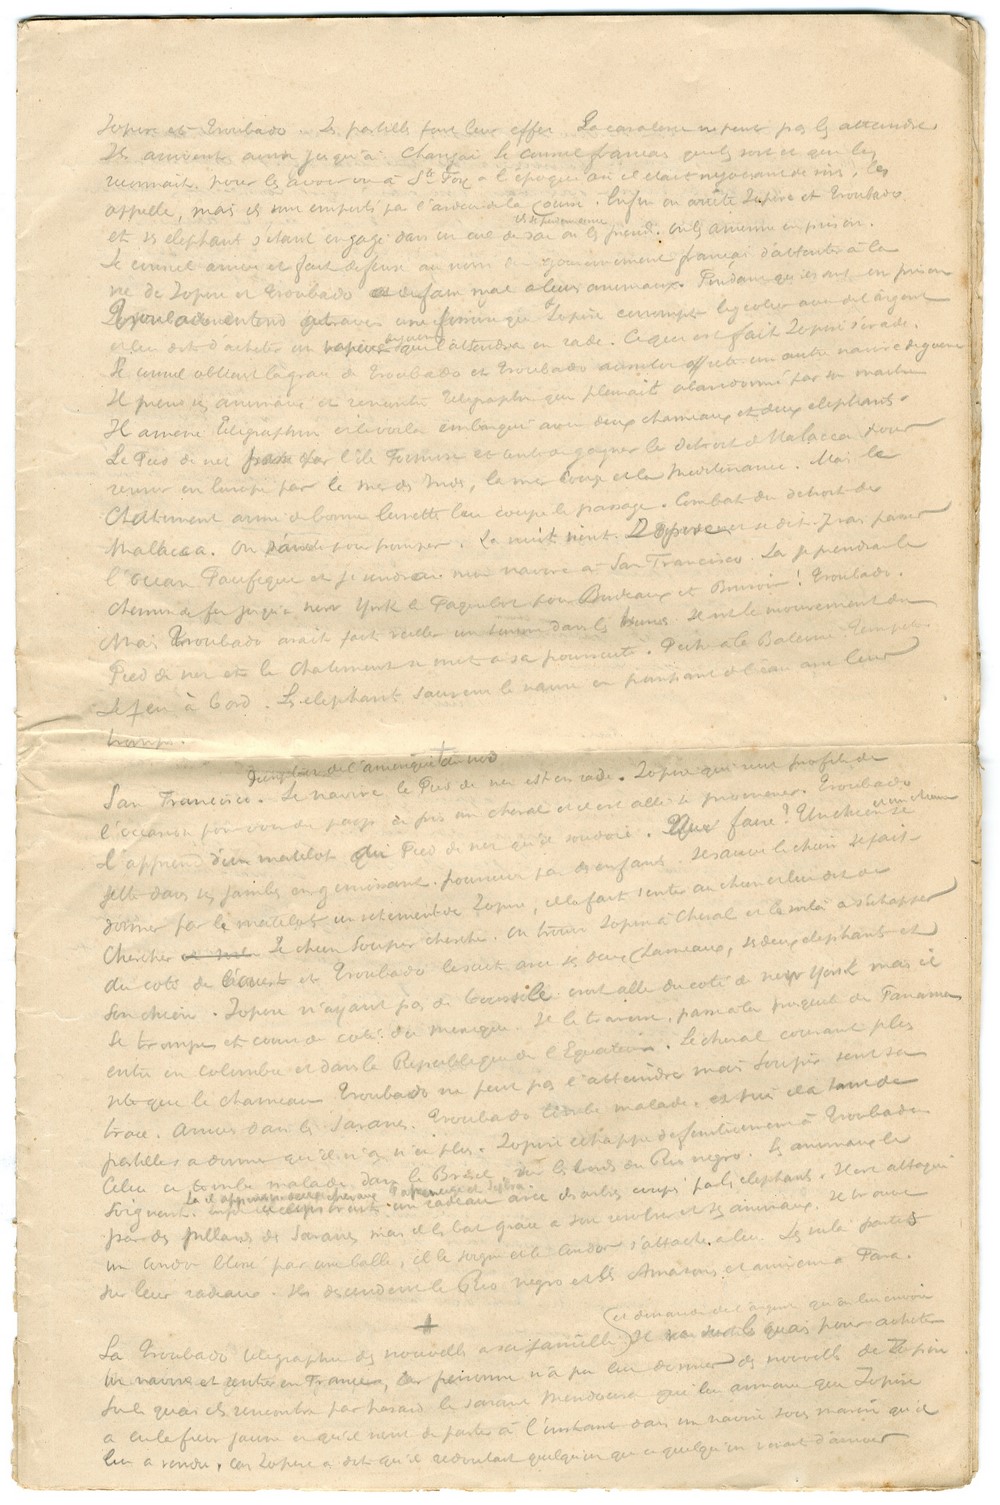 Zopire et Troubado. Les pastilles font leur effet. La cavalerie ne peut pas les atteindre.
Ils arrivent ainsi jusqu'à Changai le consul français qui les
reconnait pour les avoir vu à Ste Foy à l'époque où il etait negociant de vins, les
appelle, mais ils sont emportés par l'ardeur de la course. Enfin on arrête Zopire et Troubado
ils se perdent
et ses elephant s'etant engagé dans un cul de sac où les prend. On les amene en prison.
Le consul arrive et fait defense au nom du gouvernement français d'attenter à la
vie de Zopire et Troubado faire mal a leurs animaux. Pendant qu'ils sont en prison
Troubado entend que Zopire corrompt le geolier avec de l'argent
et lui dit d'acheter un qui l'attendra en rade. Ce qui est fait Zopire s'évade.
Le consul obtient la grace de Troubado et Troubado achete un autre navire de guerre
Il prend ses animaux et rencontre Telegraphe qui pleurait abandonné par son maitre
Il amene Telegraphe et le voila embarqué avec deux chameaux et deux elephants.
Le Pied de nez par l'île Formose et tente de gagner le detroit de Malacca pour
revenir en Europe par la mer des Indes, la mer rouge et la Mediterranee. Mais le
Chatiment arme de bonne lunette leur coupe le passage. Combat du detroit de
Malacca. On pour pomper. La nuit vient. Zopire se dit. J'vas passer
l'Ocean Pacifique et je vendrai mon navire à San Francisco. La je prendrai le
chemin de fer jusqu'a new York le Paquebot pour Bordeaux et Bonsoir! Troubado.
Mais Troubado avait fait veiller un dans les hunes. Il vit le mouvement du
Pied de nez et le Chatiment se met a sa poursuite. Peche a la Baleine Tempete
Le feu à bord. Les elephants sauvent le navire en pompant de l'eau avec leur
trompe.
de l'amerique du nord
San Francisco. Le navire le Pied de nez est en rade. Zopire qui veut profiter de
l'occasion pour voir du pays a pris un cheval et il est allé se promener. Troubado
l'apprend d'un matelot du Pied de nez qu'il soudoie. Que faire? Un chien se
jette dans ses jambes en gemissant, poursuivi par des enfants. Il sauve le chien se fait
donner par le matelot un vetement de Zopire, et le fait sentir au chien et lui dit de
chercher Le chien Soupir cherche. On trouve Zopire à cheval et le voilà a s'échapper
du coté de l'ouest et Troubado le suit avec ses deux chameaux, ses deux elephants et
son chien. Zopire n'ayant pas de boussole croit aller du coté de new York mais il
se trompe et court du coté du mexique. Il le traverse, passe a le de Panama
entre en Colombie et dans la Republique de l'Equateur. Le cheval courant plus
vite que le chameau Troubado ne peut pas l'atteindre mais Soupir sent sa
trace. Arrivée dans les Savanes. Troubado tombe malade, et puis il a tant de
pastilles a donner qu'il n'en a plus. Zopire echappe definitivement à Troubado
Celui ci tombe malade dans le Brésil sur les bords du Rio negro. Les animaux le
soignent. un radeau avec des arbres coupés par les elephants. Il est attaqué
par des pillards de Savanes mais il les bat grace a son revolver et ses animaux. Il trouve
un condor blessé par une balle, il le soigne et le condor s'attache a lui. Les voilà partis
sur leur radeau. Ils descendent le Rio negro et les Amazones et arrivent a Para.
+
(et demande de l'argent qu'on lui envoie
La Troubado telegraphie des nouvelles a sa famille) Il va sur le quai pour acheter
un navire et rentrer en France, car personne n'a pu lui donner des nouvelles de Zopire
Sur le quai ils rencontre par hasard le savant Mendoura qui lui annonce que Zopire
a eu la fievre jaune et qu'il vient de partir à l'instant dans un navire sous marin qu'il
lui a vendu, car Zopire a dit qu'il redoutait quelqu'un que ce quelqu'un venait d'arriver